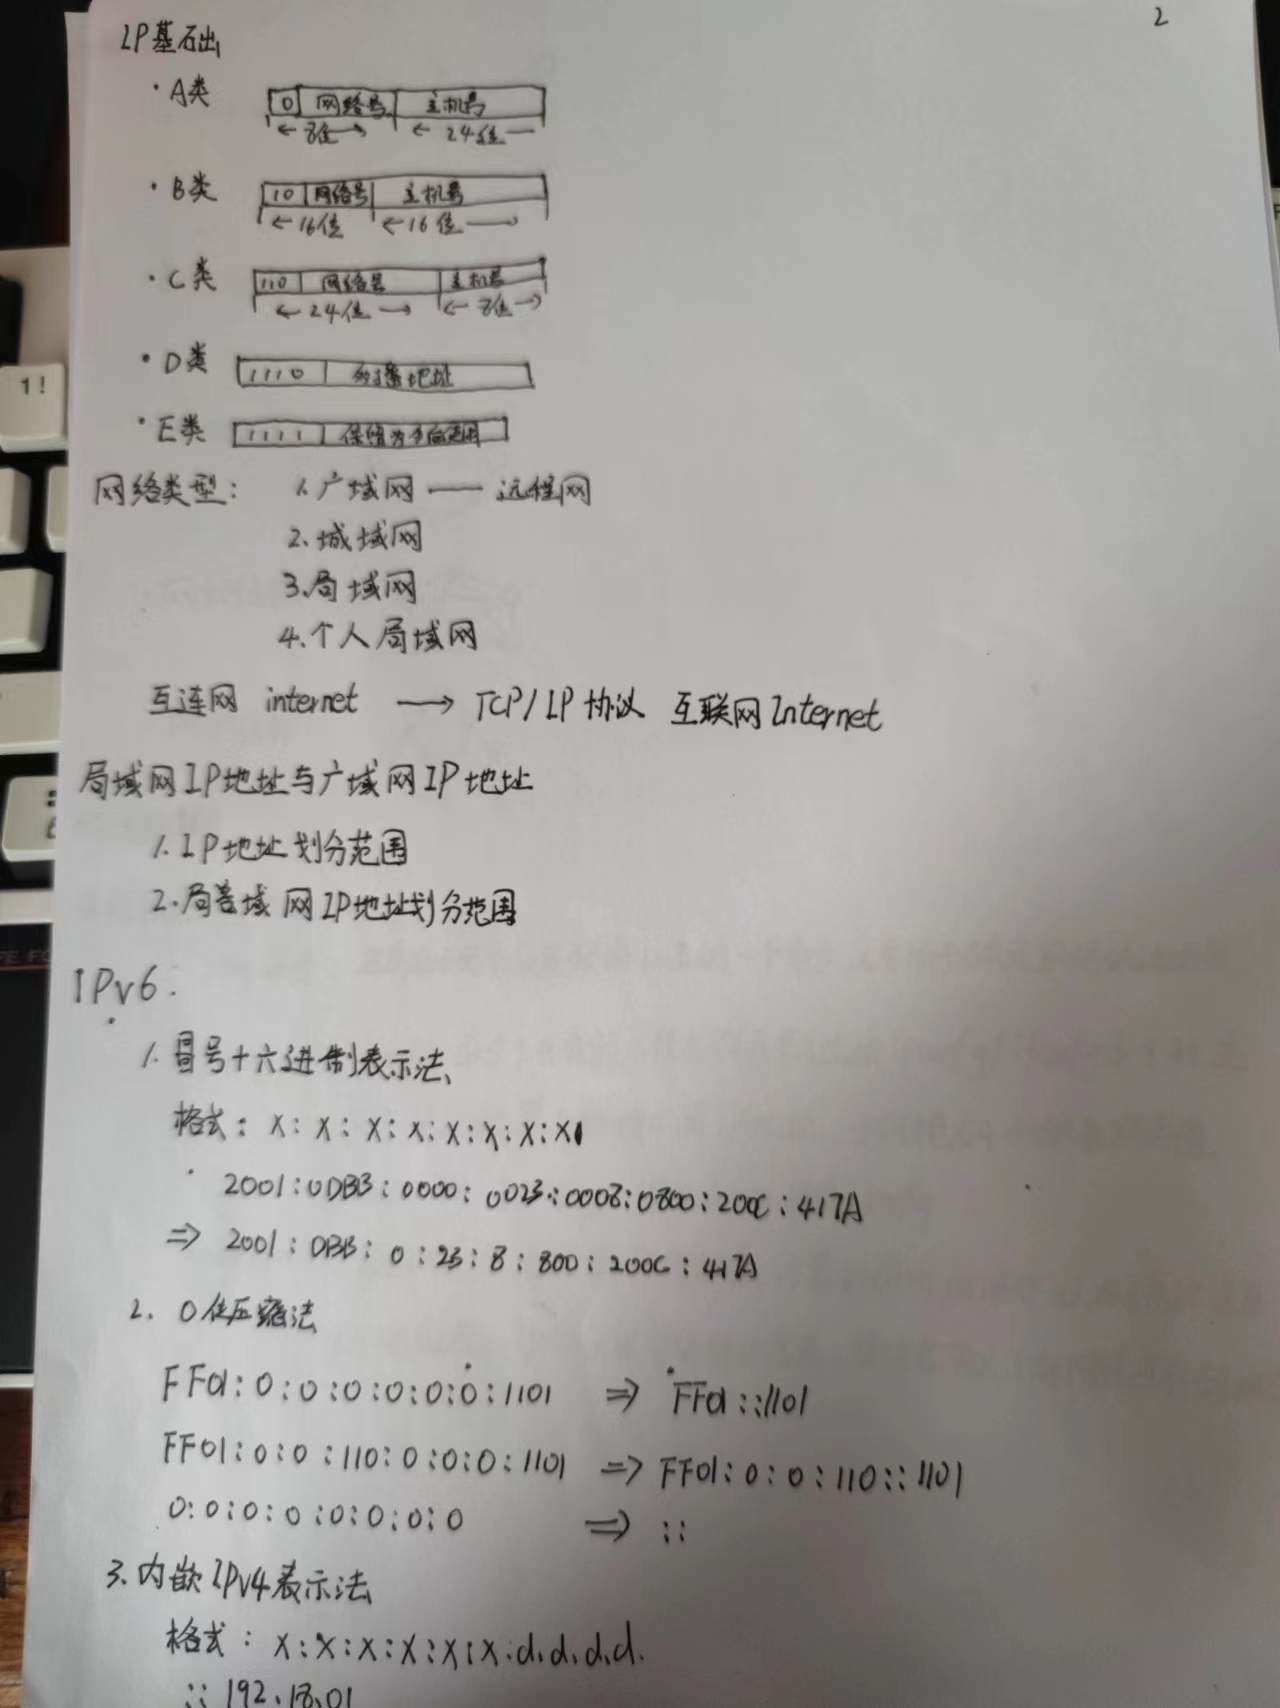 2
IP基础
·A类 0 网络号 主机号
←8位→ ←24位—
·B类 10 网络号 主机号
←16位 ←16位—→
·C类 110 网络号 主机号
←24位→ ←8位→
·D类 1110 多播地址
·E类 1111 保留为今后使用
网络类型: 1.广域网 —— 远程网
2.城域网
3.局域网
4.个人局域网
互连网 internet —→ TCP/IP协议 互联网Internet
局域网IP地址与广域网IP地址
1.IP地址划分范围
2.局域网IP地址划分范围
IPv6:
1.冒号十六进制表示法
格式: X:X:X:X:X:X:X:X
2001:0DB8:0000:0023:0008:0800:200C:417A
⇒ 2001:DB8:0:23:8:800:200C:417A
2. 0位压缩法
FF01:0:0:0:0:0:0:1101 ⇒ FF01::1101
FF01:0:0:110:0:0:0:1101 ⇒ FF01:0:0:110::1101
0:0:0:0:0:0:0:0 ⇒ ::
3.内嵌IPv4表示法
格式: X:X:X:X:X:X:d.d.d.d.
::192.18.01
1!